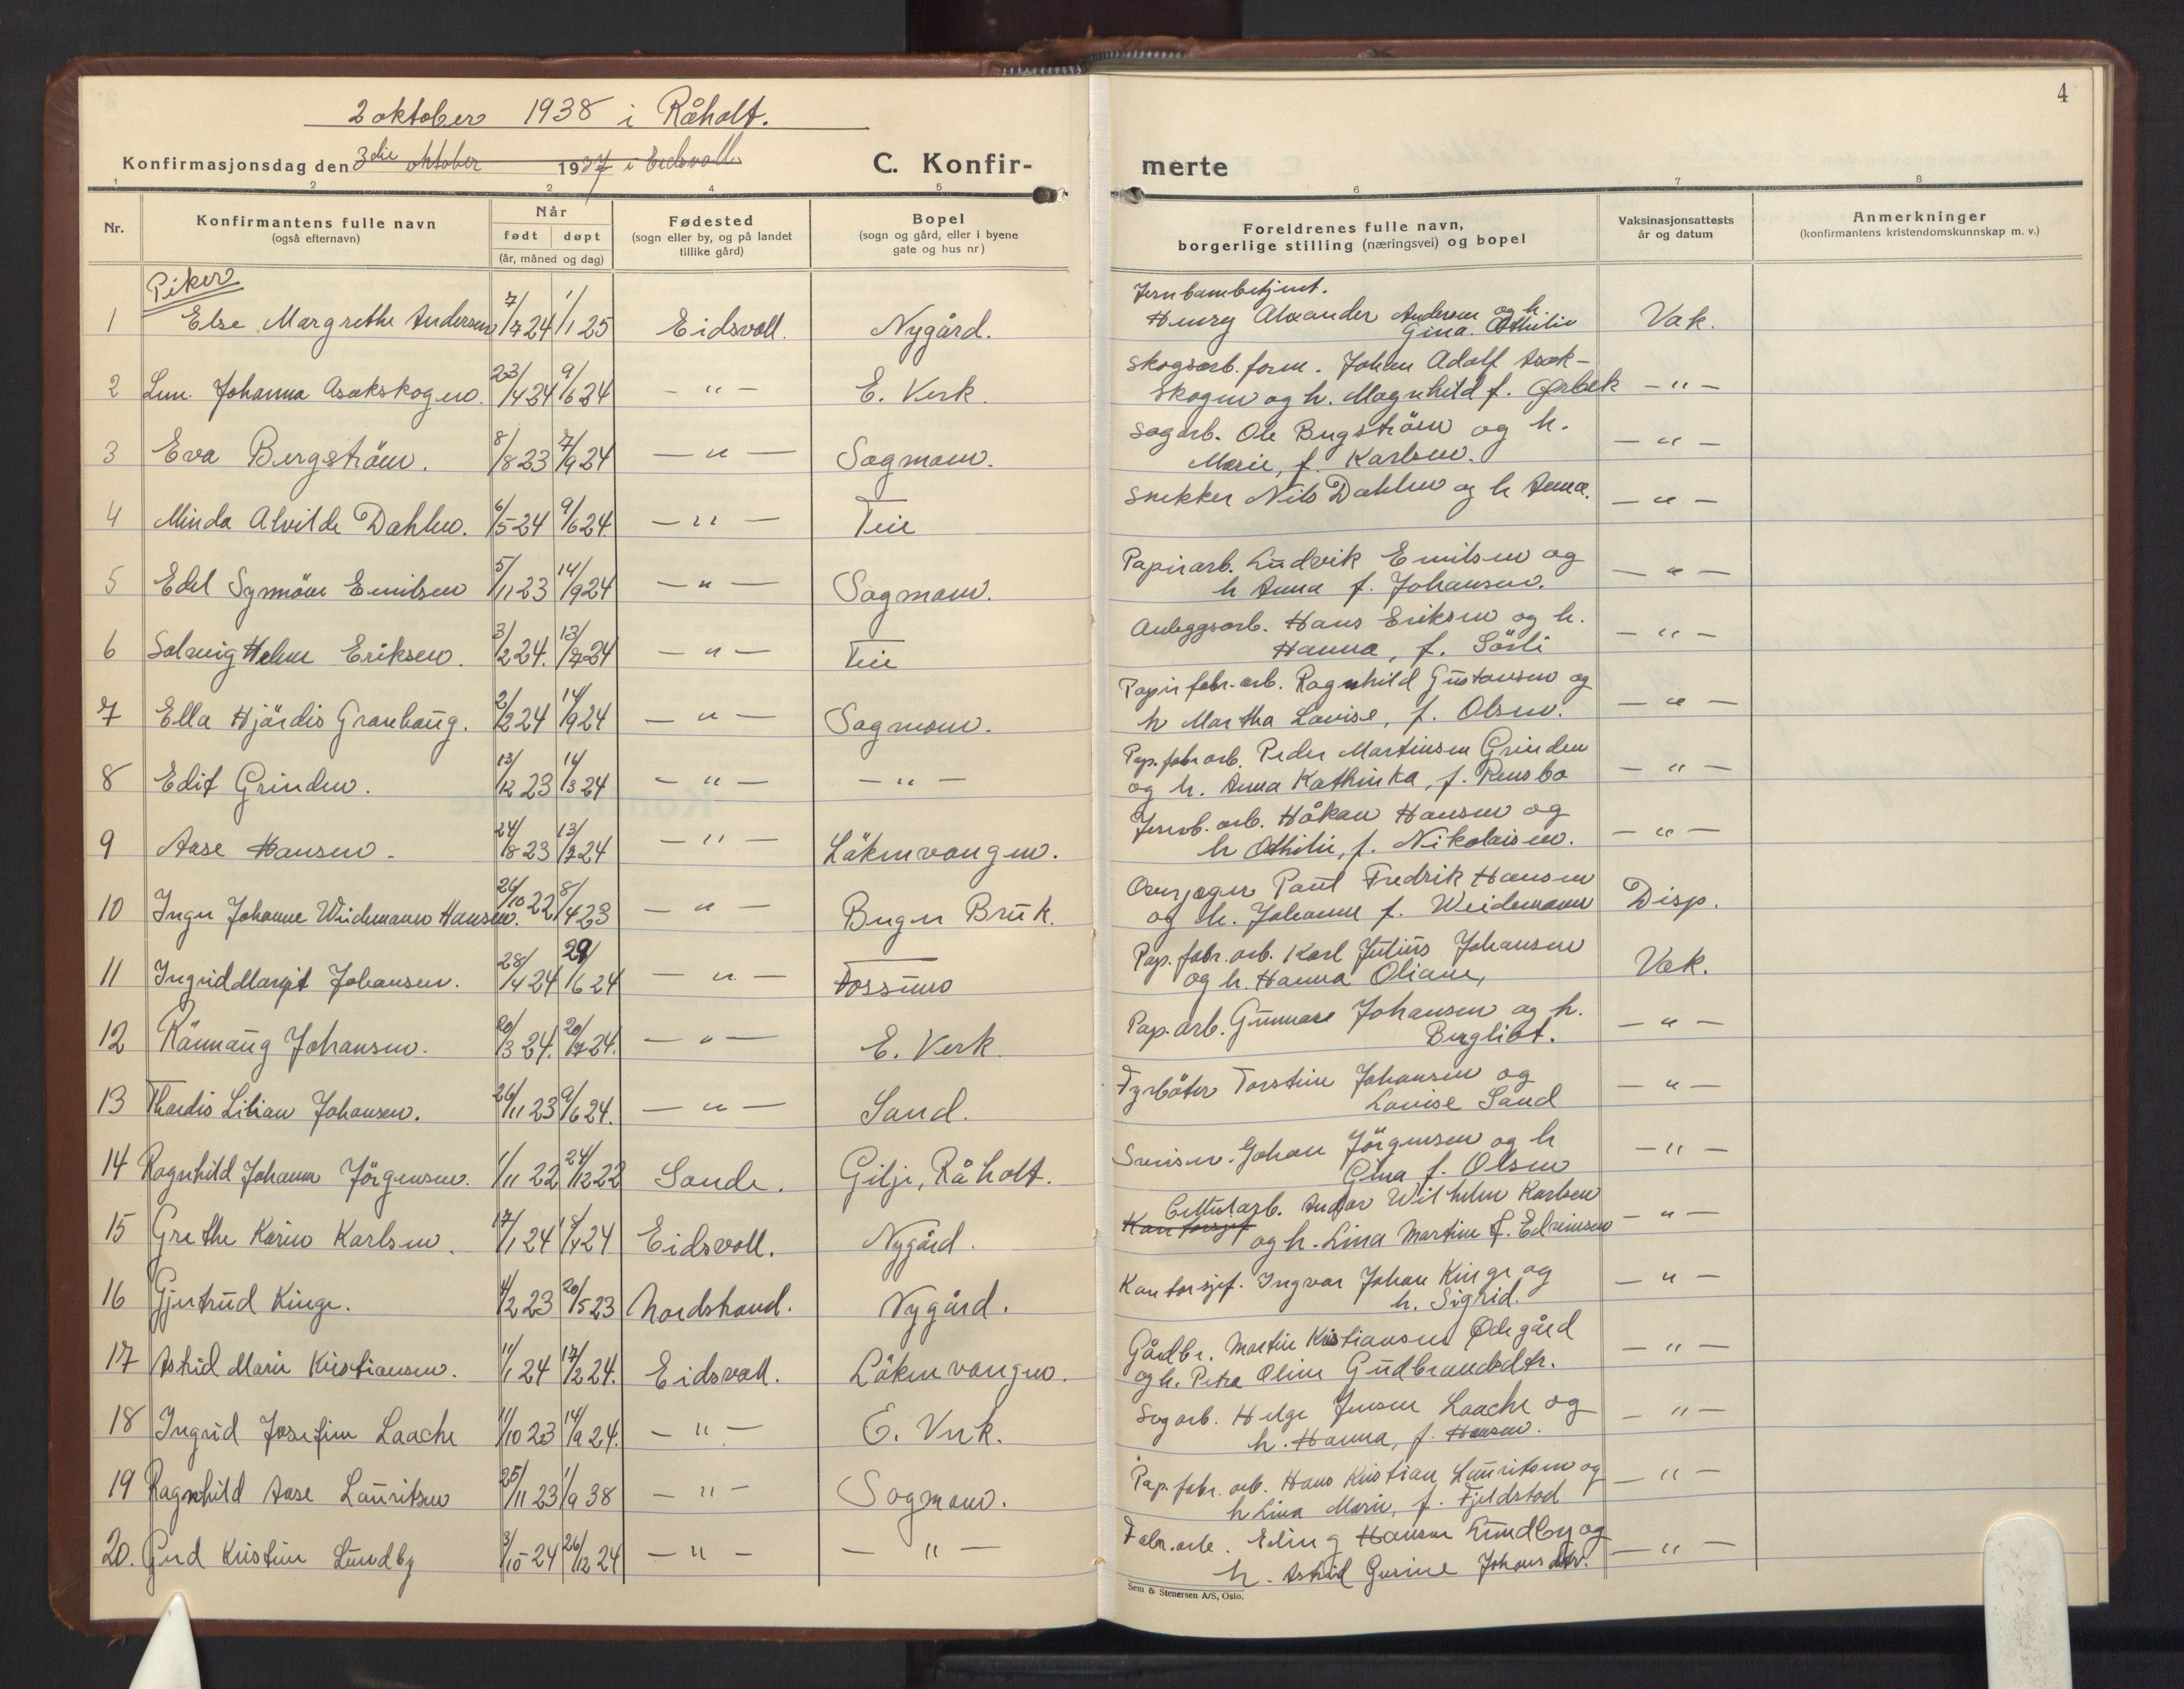 2 oktober 1938 i Råholt.
Konfirmasjonsdag den 3die oktober 1937 i Eidsvoll
C. Konfir-
1 2 3 4 5
Nr.
Konfirmantens fulle navn
(også efternavn)
Når
født døpt
(år, måned og dag)
Fødested
(sogn eller by, og på landet
tillike gård)
Bopel
(sogn og gård, eller i byene
gate og hus nr)
Piker
1 Else Margrethe Andersen 7/7 24 1/1 25 Eidsvoll. Nygård.
2 Johanna Asakskogen. 23/4 24 9/6 24 - " - E. Verk.
3 Eva Bergström. 8/8 23 7/9 24 - " - Sagmoen.
4 Minda Alvilde Dahlen. 6/5 24 9/6 24. - " - Teie
5 Edel Synnöve Emilsen 5/11 23 14/9 24 - " - Sagmoen.
6 Solveig Helene Eriksen. 3/2 24. 13/7 24 - " - Teie
7 Ella Hjördis Granhaug. 2/2 24 14/9 24 - " - Sagmoen.
8 Edit Grinden. 13/12 23 14/3 24 - " - - " -
9 Aase Hansen. 24/8 23 13/7 24 - " - Läkenvangen.
10 Inger Johanne Weidemann Hansen. 26/10 22 8/4 23 - " - Berger Bruk.
11 Ingrid Margit Johansen. 28/4 24 29/6 24 - " - Fossum
12 Rännaug Johansen. 20/3 24. 20/7 24. - " - E. Verk.
13 Thordis Lilian Johansen. 26/11 23 9/6 24. - " - Sand.
14 Ragnhild Johanne Jörgensen. 1/11 22 24/12 22 Sande. Gilje, Råholt.
15 Grethe Karin Karlsen. 17/1 24 18/4 24 Eidsvoll. Nygård.
16 Gjertrud Kinge. 4/2 23 20/5 23 Nordstrand. Nygård.
17 Astrid Marie Kristiansen. 11/1 24 17/2 24. Eidsvoll. Läkenvangen.
18 Ingrid Josefine Laache 11/10 23 14/9 24. - " - E. Verk.
19 Ragnhild Aase Lauritsen 25/11 23 1/9 38 - " - Sagmoen.
20. Gerd Kristine Lundby 3/10 24 26/12 24 - " - - " -
4
merte
6 7 8
Foreldrenes fulle navn,
borgerlige stilling (næringsvei) og bopel
Vaksinasjonsattests
år og datum
Anmerkninger
(konfirmantens kristendomskunnskap m. v.)
Jernbanebetjent.
Henry Alexander Andersen og h.
Gina Othilie Vak.
Skogsarb. form. Johan Adolf Asak-
skogen og h. Magnhild f. Ørbek - " -
Sagarb. Ole Bergström og h.
Marie, f. Karlsen. - " -
Snekker Nils Dahlen og h Anna. - " -
Papirarb. Ludvik Emilsen og
h Anna f. Johansen. - " -
Anleggsarb. Hans Eriksen og h.
Hanna, f. Sörli - " -
Papir fabr. arb. Ragnhild Gustavsen og
h Martha Lovise, f. Olsen. - " -
Pap. fabr arb. Peder Martinsen Grinden
og h. Anna Kathinka, f. Rensbo - " -
Jernb. arb. Håkon Hansen og
h Othilie, f. Nikolaisen. - " -
Overjeger Paul Fredrik Hansen
og h. Johanne f. Weidemann Disp.
Pap. fabr. arb. Karl Julius Johansen
og h. Hanna Oliane, Vak.
Pap. arb. Gunnar Johansen og h.
Bergliot. - " -
Fyrböter Torstein Johansen og
Lovise Sand - " -
Johan Jörgensen og h
Gina f. Olsen - " -
Cellul arb. Wilhelm Karlsen
Kontorsjef og h. Lina Martine f. - " -
Kontorsjef. Ingvar Johan Kinge og
h. Sigrid. - " -
Gårdbr. Martin Kristiansen Ødegård
og h. Petra Oline Gudbrandsdtr. - " -
Sagarb. Helge Jensen Laache og
h. Hanna, f. Hansen. - " -
Pap. fabr. arb. Hans Kristian Lauritsen og
h Lina Marie, f. Fjeldstad - " -
Fabr. arb. Erling Hansen Lundby og
h. Astrid Gurine Johansdtr. - " -
Sem & Stenersen A/S, Oslo.